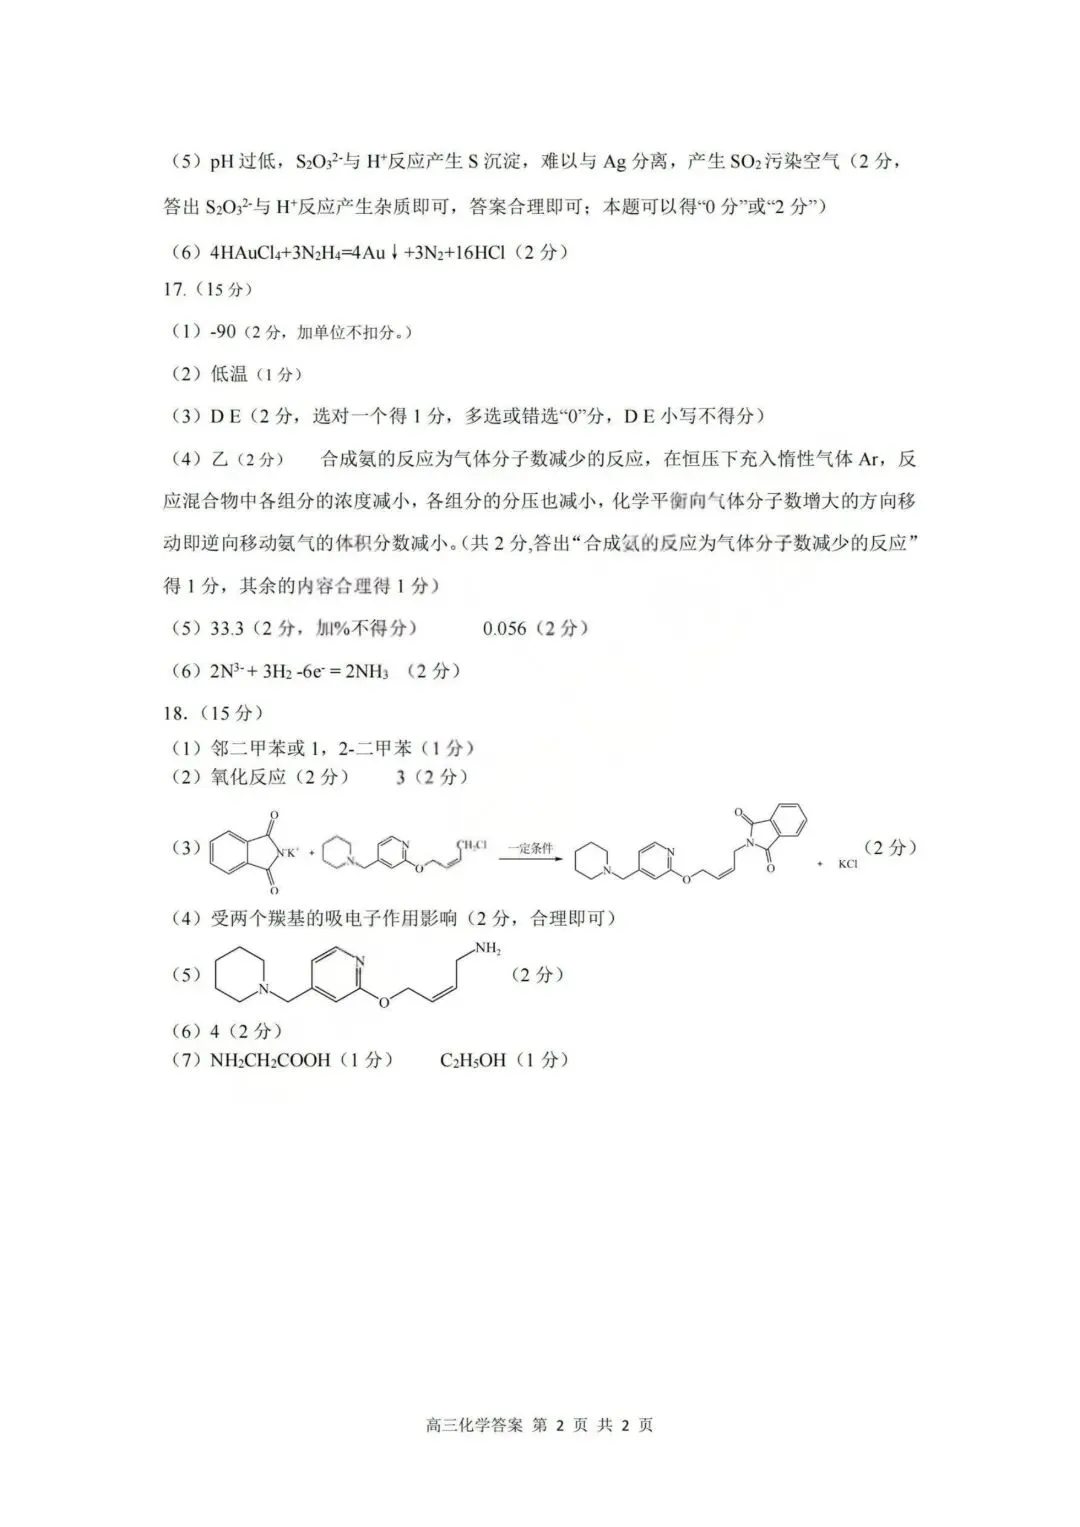 （5）pH 过低，S₂O₃²⁻与 H⁺反应产生 S 沉淀，难以与 Ag 分离，产生 SO₂污染空气（2 分，
答出 S₂O₃²⁻与 H⁺反应产生杂质即可，答案合理即可；本题可以得“0 分”或“2 分”）
（6）4HAuCl₄+3N₂H₄=4Au↓+3N₂+16HCl（2 分）
17.（15 分）
（1）-90（2 分，加单位不扣分。）
（2）低温（1 分）
（3）D E（2 分，选对一个得 1 分，多选或错选“0”分，D E 小写不得分）
（4）乙（2 分） 合成氨的反应为气体分子数减少的反应，在恒压下充入惰性气体 Ar，反
应混合物中各组分的浓度减小，各组分的分压也减小，化学平衡向气体分子数增大的方向移
动即逆向移动氨气的体积分数减小。（共 2 分,答出“合成氨的反应为气体分子数减少的反应”
得 1 分，其余的内容合理得 1 分）
（5）33.3（2 分，加%不得分） 0.056（2 分）
（6）2N³⁻ + 3H₂ -6e⁻ = 2NH₃ （2 分）
18.（15 分）
（1）邻二甲苯或 1，2-二甲苯（1 分）
（2）氧化反应（2 分） 3（2 分）
（3） O O N⁻K⁺ + N N O CH₂Cl 一定条件 N N O N O O + KCl （2 分）
（4）受两个羰基的吸电子作用影响（2 分，合理即可）
（5） N N O NH₂ （2 分）
（6）4（2 分）
（7）NH₂CH₂COOH（1 分） C₂H₅OH（1 分）
高三化学答案 第 2 页 共 2 页